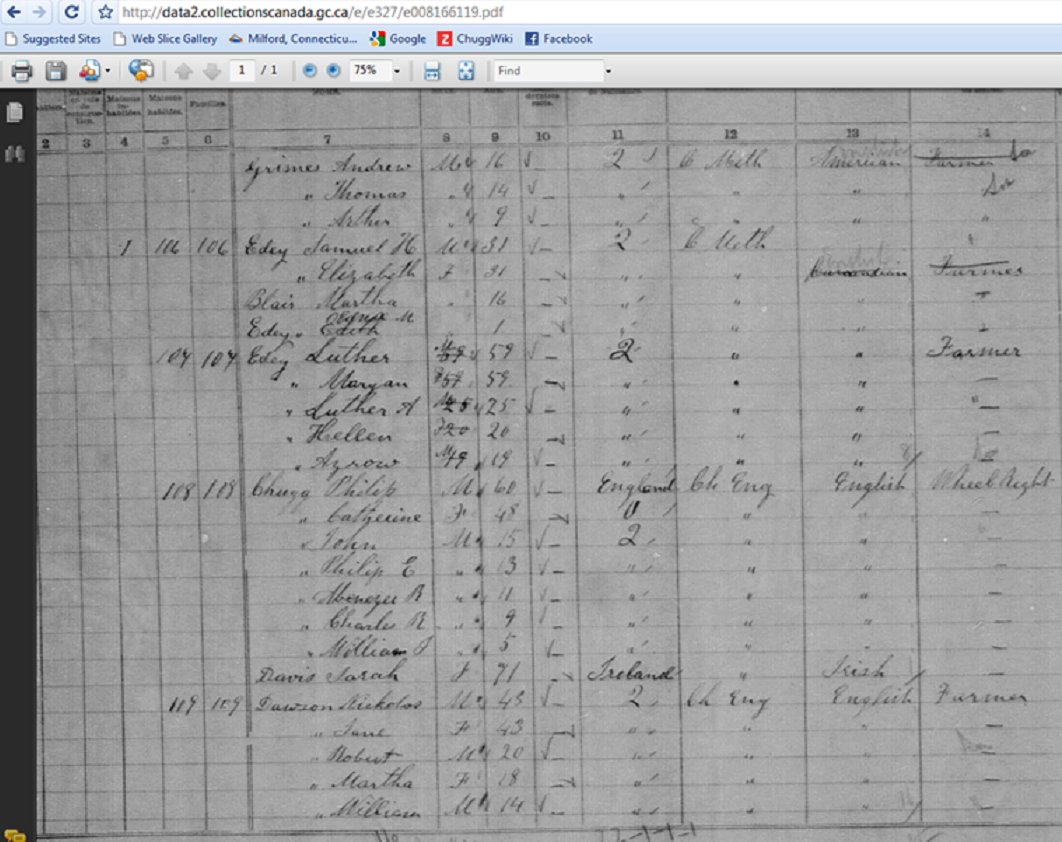 http://data2.collectionscanada.gc.ca/e/e327/e008166119.pdf
Suggested Sites Web Slice Gallery Milford, Connecticu... Google ChuggWiki Facebook
1 / 1 75% Find
Maisons Maisons habitées. Familles.
2 3 4 5 6 7 8 9 10 11 12 13 14
Grimes Andrew M 16 √ – 2 C Meth American Farmer
" Thomas " 14 √ – " " "
" Arthur " 9 √ – " " " "
1 106 106 Edey Samuel H M 31 √ – 2 C Meth
" Elizabeth F 31 – √ " " Canadian Farmer
Blair Martha " 16 – √ " " "
Edey " Edith M " 1 – √ " " "
107 107 Edey Luther 59 59 √ – 2 " " Farmer
" Maryan 59 59 – √ " " " –
" Luther A 25 25 √ – " " " –
" Hellen F20 20 – √ " " " –
" Azrow M19 19 √ – " " " –
108 108 Chugg Philip M 60 √ – England Ch Eng English Wheel Right
" Catherine F 48 – √ 0 " " –
" John M 15 √ – 2 " " –
" Philip E " 13 √ – " " " –
" Ebenezer R " 11 √ – " " " –
" Charles R " 9 √ – " " " –
" William J " 5 √ – " " " –
Davis Sarah F 71 – √ Ireland " Irish –
109 109 Dawson Nickolos M 45 √ – 2 Ch Eng English Farmer
" Jane F 43 – √ " " " –
" Robert M 20 √ – " " "
" Martha F 18 – √ " " " –
" William M 14 √ – " " " –